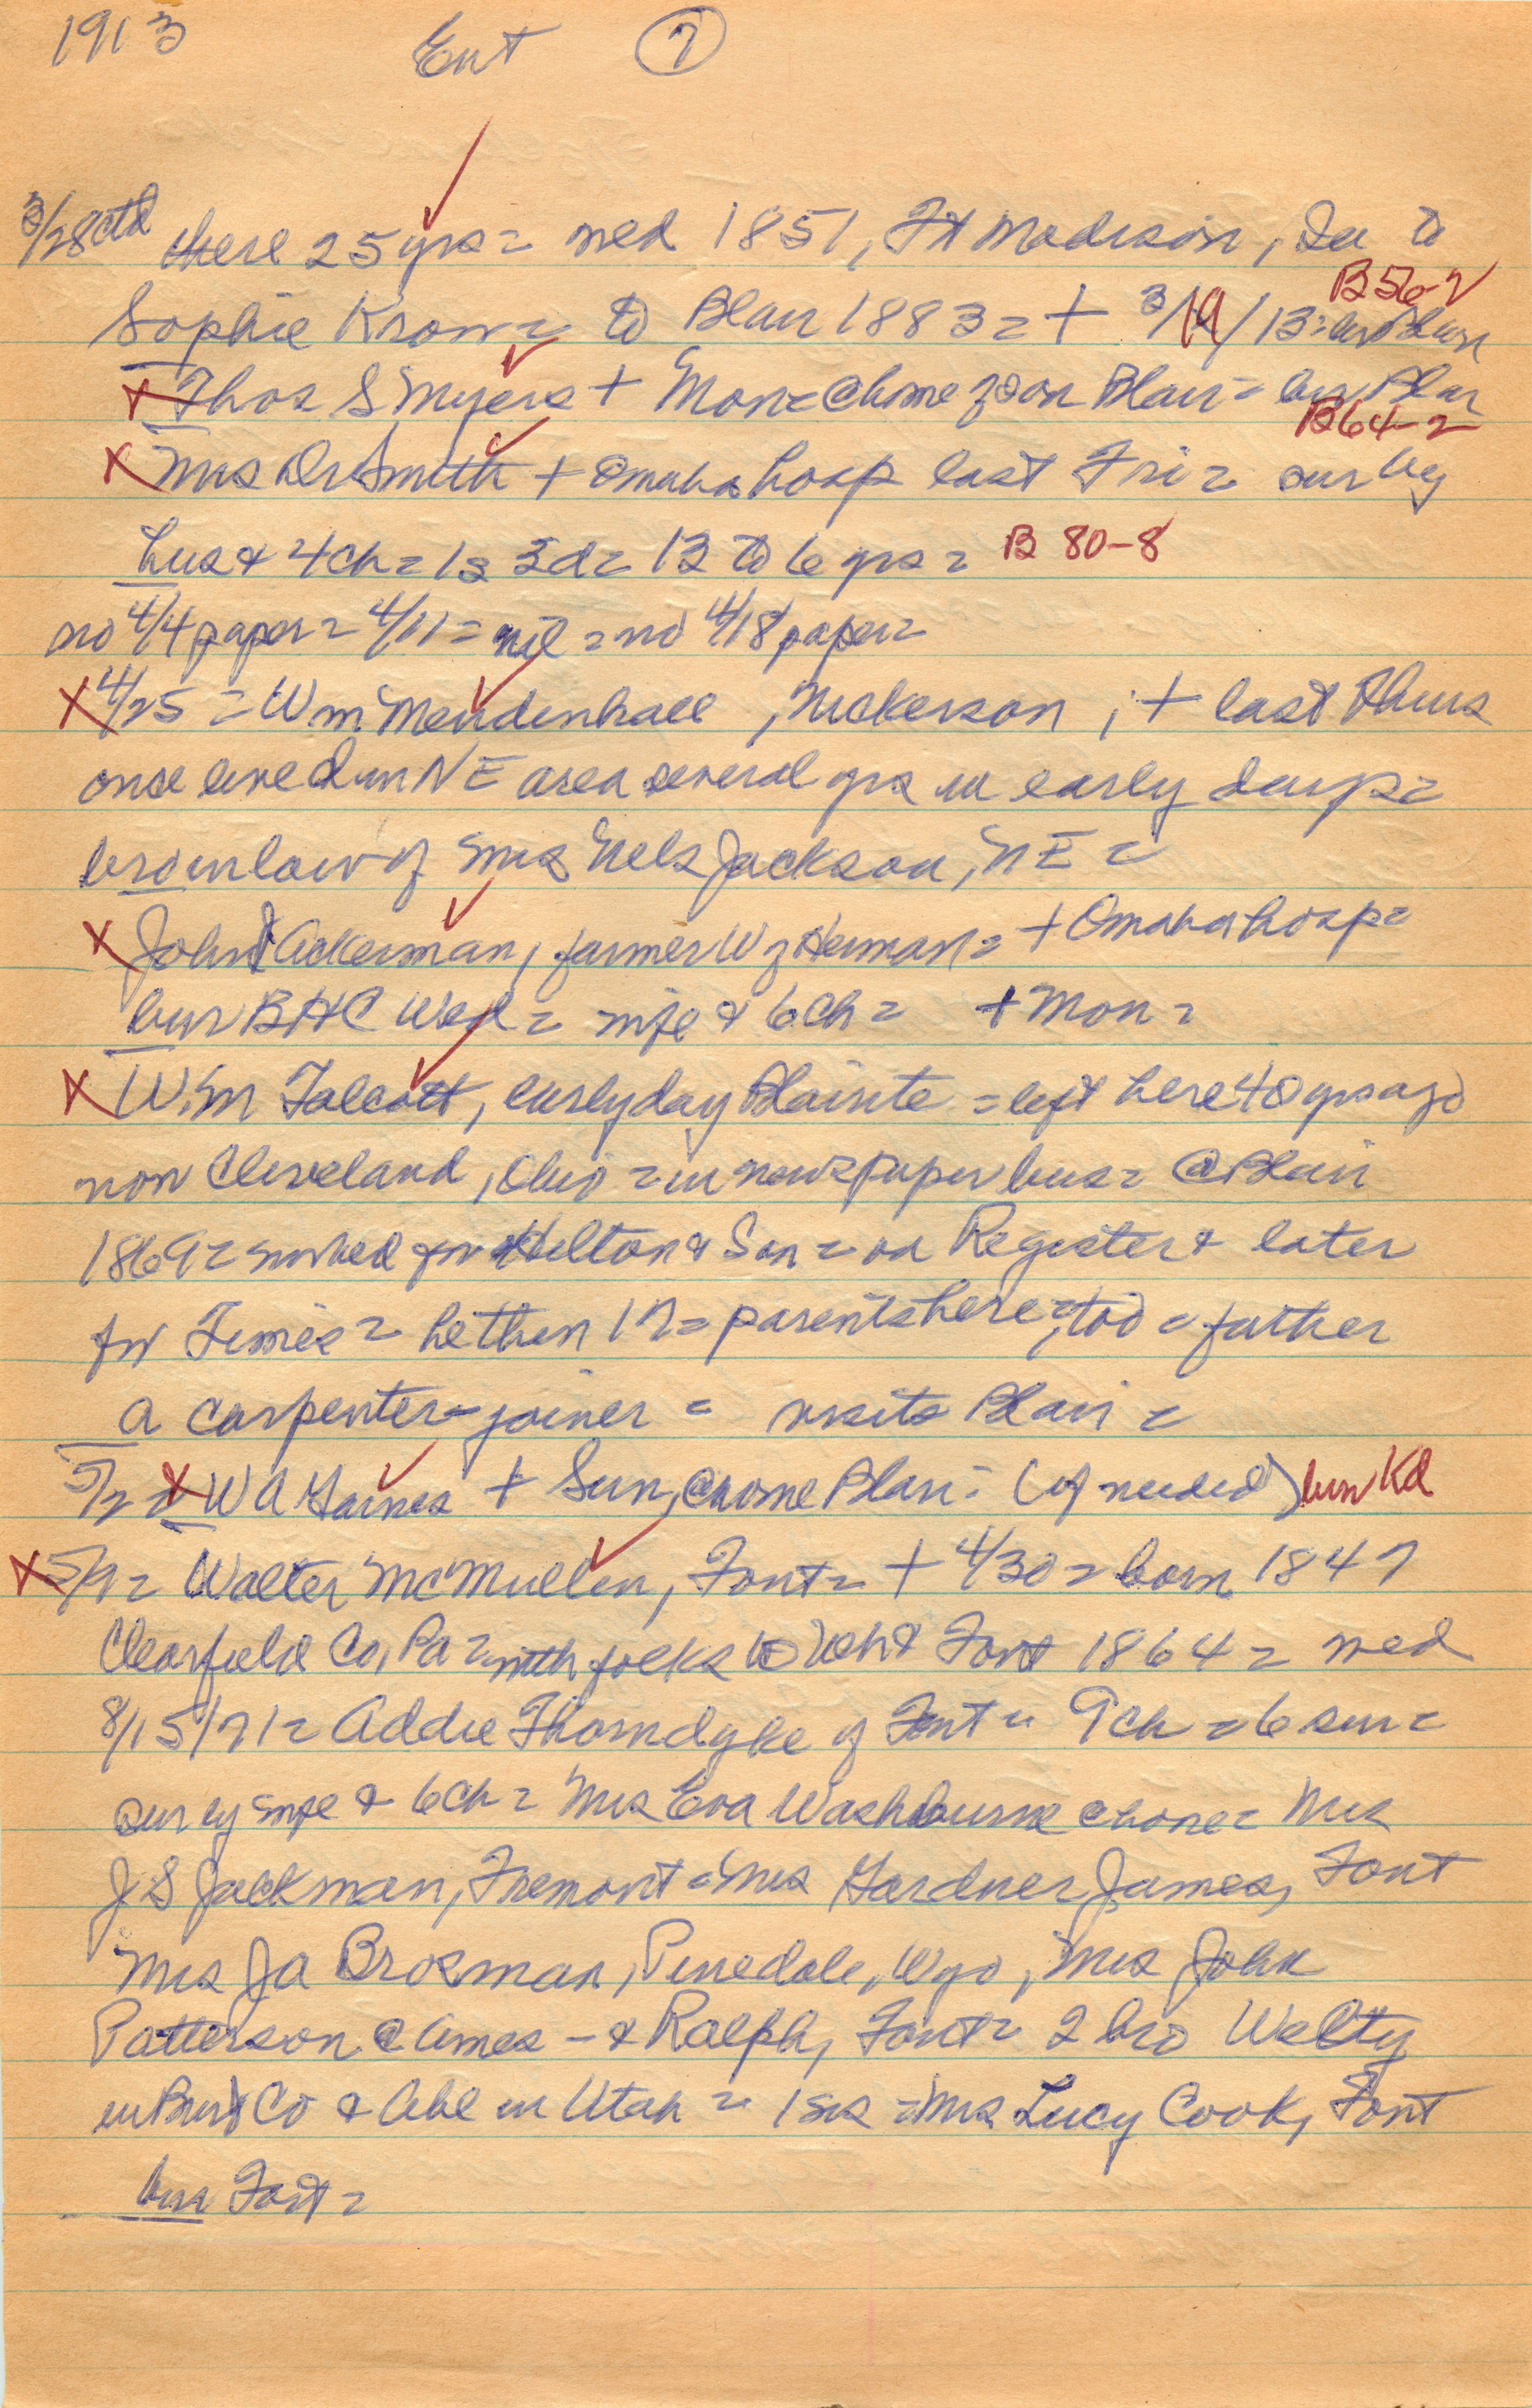 1913 Ent 7
3/28 ctd there 25 yrs = wed 1851, Ft Madison, Ia to
B 56-2
Sophie Kron = to Blair 1883 = + 3/19/13 =
X Thos S Myers + Mon = @ home zo on Blair = bur Blair
B 64-2
X Mrs Dr Smith + Omaha hosp last Fri = sur by
hus & 4 ch = 1s 3d = 13 to 6 yrs = B 80-8
no 4/4 paper = 4/11 = nil = no 4/18 paper =
X 4/25 = Wm Mendenhall, Nickerson, + last Thurs
once lived in NE area several yrs in early days =
bro in law of Mrs Nels Jackson, NE =
X John Ackerman, farmer W of Herman = + Omaha hosp =
bur BHC Wed = wife & 6 ch = + Mon =
X W.M Talcott, early day Blairite = left here 40 yrs ago
now Cleveland, Ohio = in newspaper bus = @ Blair
1869 = worked for Hilton & Son = on Register & later
for Times = he then 17 = parents here, too = father
a carpenter-joiner = visits Blair =
5/2 = X W A Gaines + Sun, @ home Blair = (if needed) bur Kd
X 5/9 = Walter McMullen, Font = + 4/30 = born 1847
Clearfield Co, Pa = with folks to & Font 1864 = wed
8/15/71 = Addie Thorndyke of Font = 9 ch = 6 sur =
sur by wife & 6 ch = Mrs Eva Washburne @ home = Mrs
J S Jackman, Fremont = Mrs Gardner James, Font
Mrs J A Brosman, Pinedale, Wyo, Mrs John
Patterson @ Ames - & Ralph, Font = 2 bro Welty
in Burt Co & Abe in Utah = 1 sis = Mrs Lucy Cook, Font
bur Font =